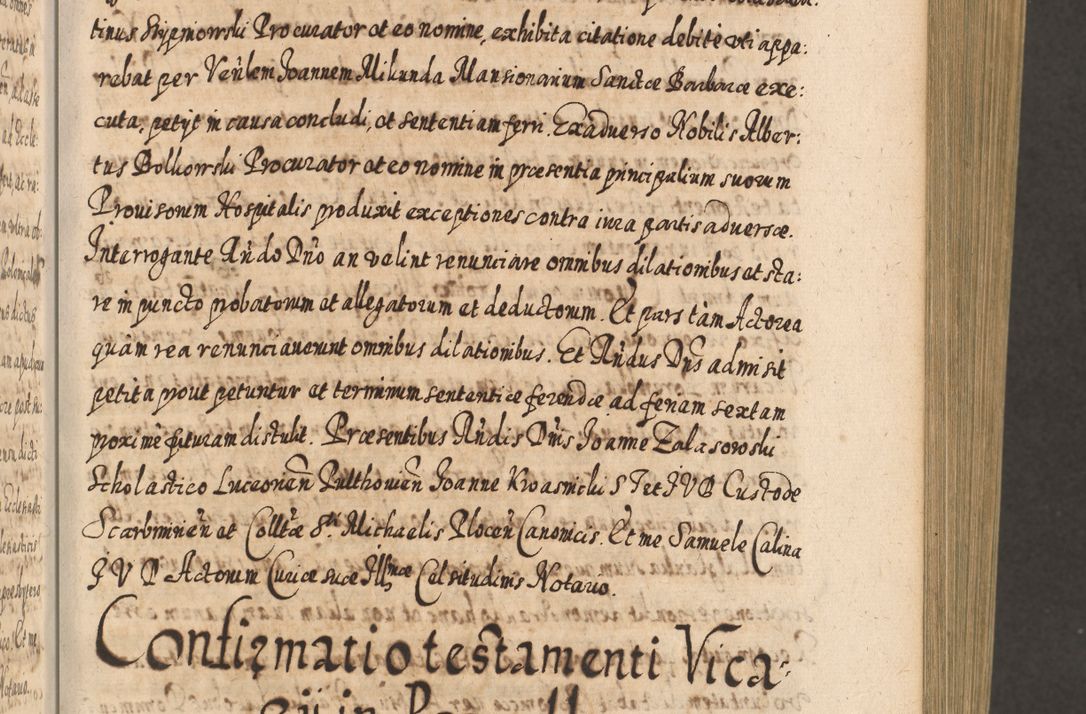 tinus Krzymowski Procurator et eo nomine, exhibita citatione debite uti appa:
rebat per Ven̄lem Joannem Mikunda Mansionarium Sanctæ Barbaræ exe:
cuta, petyt in causa concludi, et sententiam ferri. Ex adverso Nobilis Alber:
tus Bolkowski Procurator et eo nomine in præsentia principalium suorum
Provisorum Hospitalis produxit exceptiones contra iura partis adversæ.
Interrogante R̄ndo Dn̄o an velint renunciare omnibus dilationibus et sta:
re in puncto probatorum et allegatorum et deductorum. Et pars tàm Actorea
quàm rea renunciaverunt omnibus dilationibus. Et R̄ndus Dn̄s admisit
petita prout petuntur et terminum sententiæ ferendæ ad feriam sextam
proximè futuram distulit. Præsentibus R̄ndis Dn̄is Joanne Zalasowski
Scholastico Luceorien̄ Pulthovien̄ Joanne Kwasnicki S T et J V D Custode
Scarbimirien̄ et Colltæ S.ti Michaelis Plocen̄ Canonicis. Et me Samuele Calina
J V D Actorum Curiæ suæ Illmæ Celsitudinis Notario.
Confirmatio testamenti Vica:
rii in